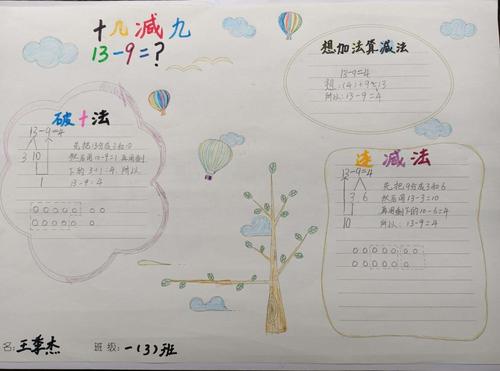 十几减九
13-9=?
想加法算减法
13-9=4
想:(4)+9=13
所以:13-9=4
破十法
13-9=4
3 10
1
先把13分成3和10
然后用10-9=1再用剩
下的3+1=4.所以
13-9=4
连减法
13-9=4
3 6
10
先把9分成3和6
然后用13-3=10
再用剩下的10-6=4
所以:13-9=4
名:王季杰 班级:一(3)班